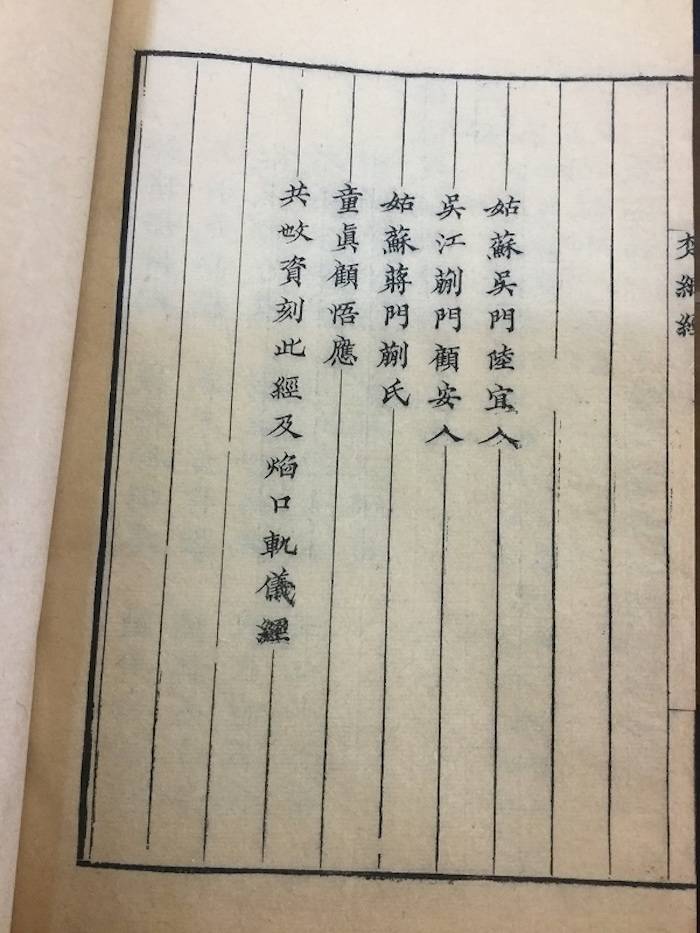 梵網經
姑蘇吳門陸宜人
吳江蒯門顧安人
姑蘇蔣門蒯氏
童眞顧悟應
共𢻱資刻此經及焰口軌儀經